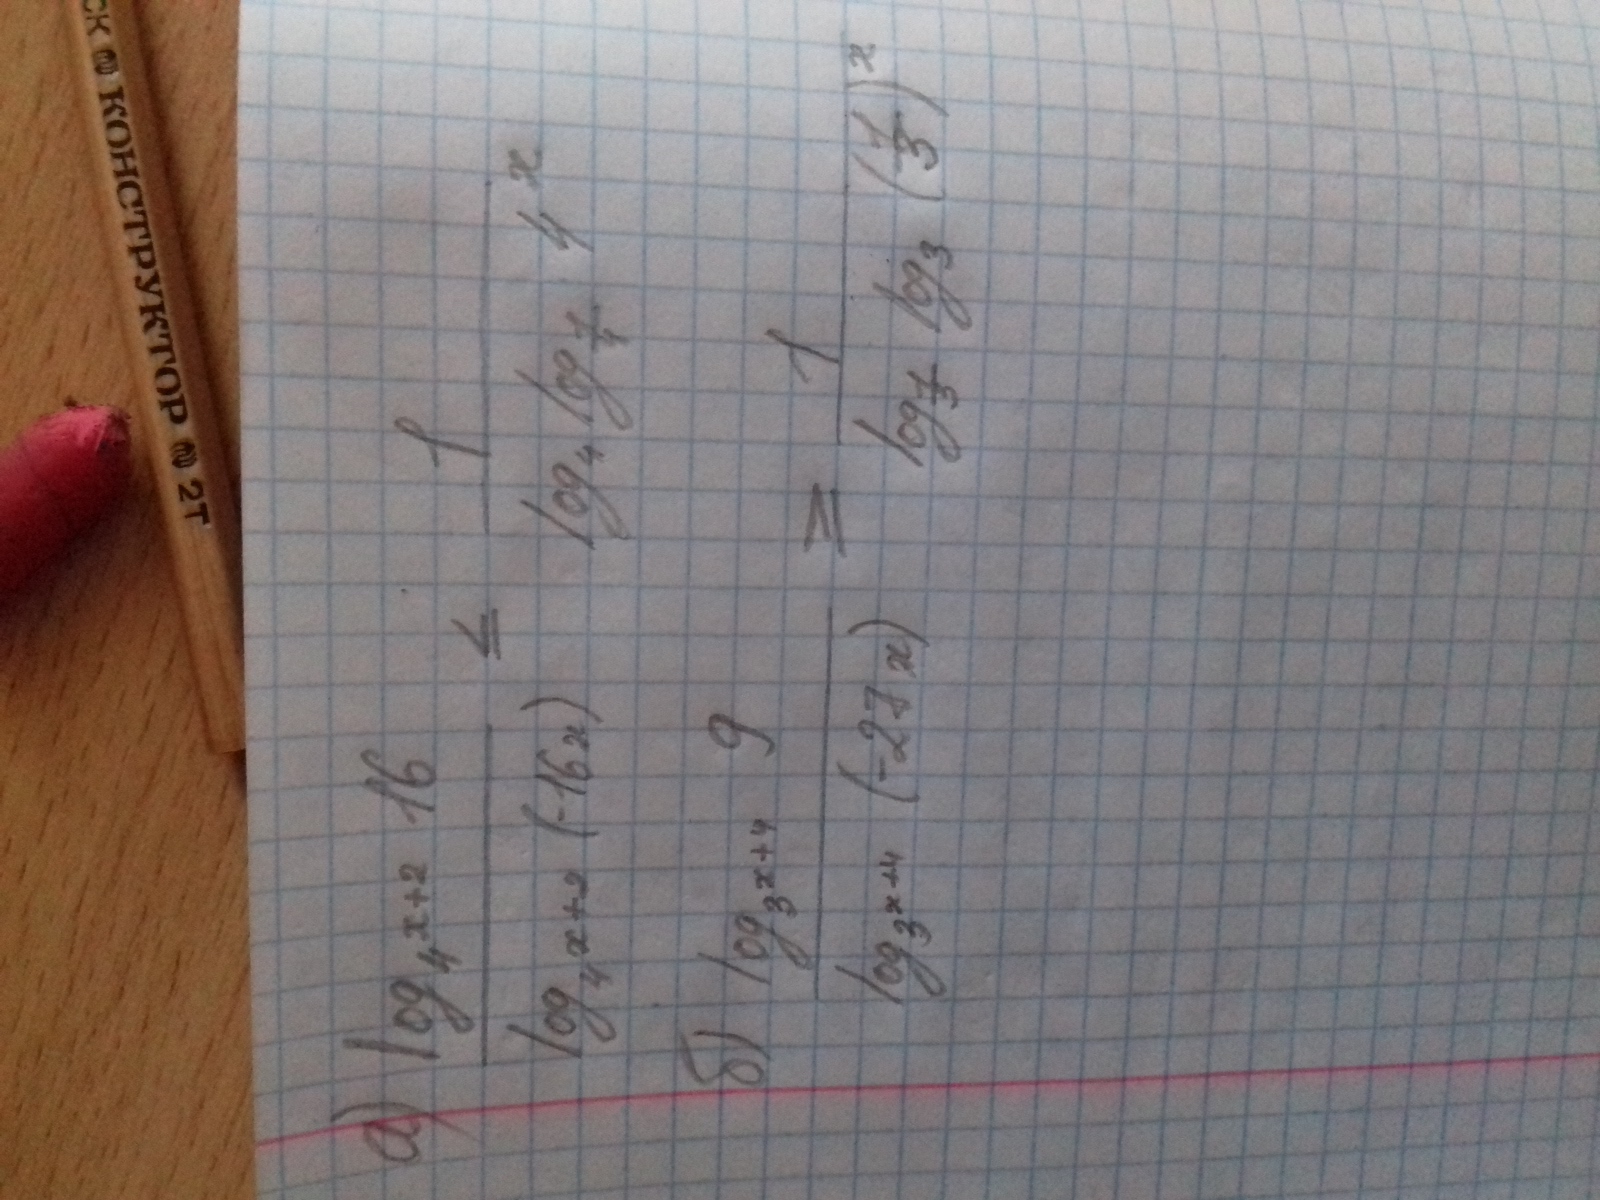 СК КОНСТРУКТОР 2Т
а) log_{4^{x+2}} 16 / log_{4^{x+2}} (-16x) ≤ 1 / log_4 log_{1/4} 4^x
б) log_{3^{x+4}} 9 / log_{3^{x+4}} (-27x) ≥ 1 / log_{1/3} log_3 (1/3)^x